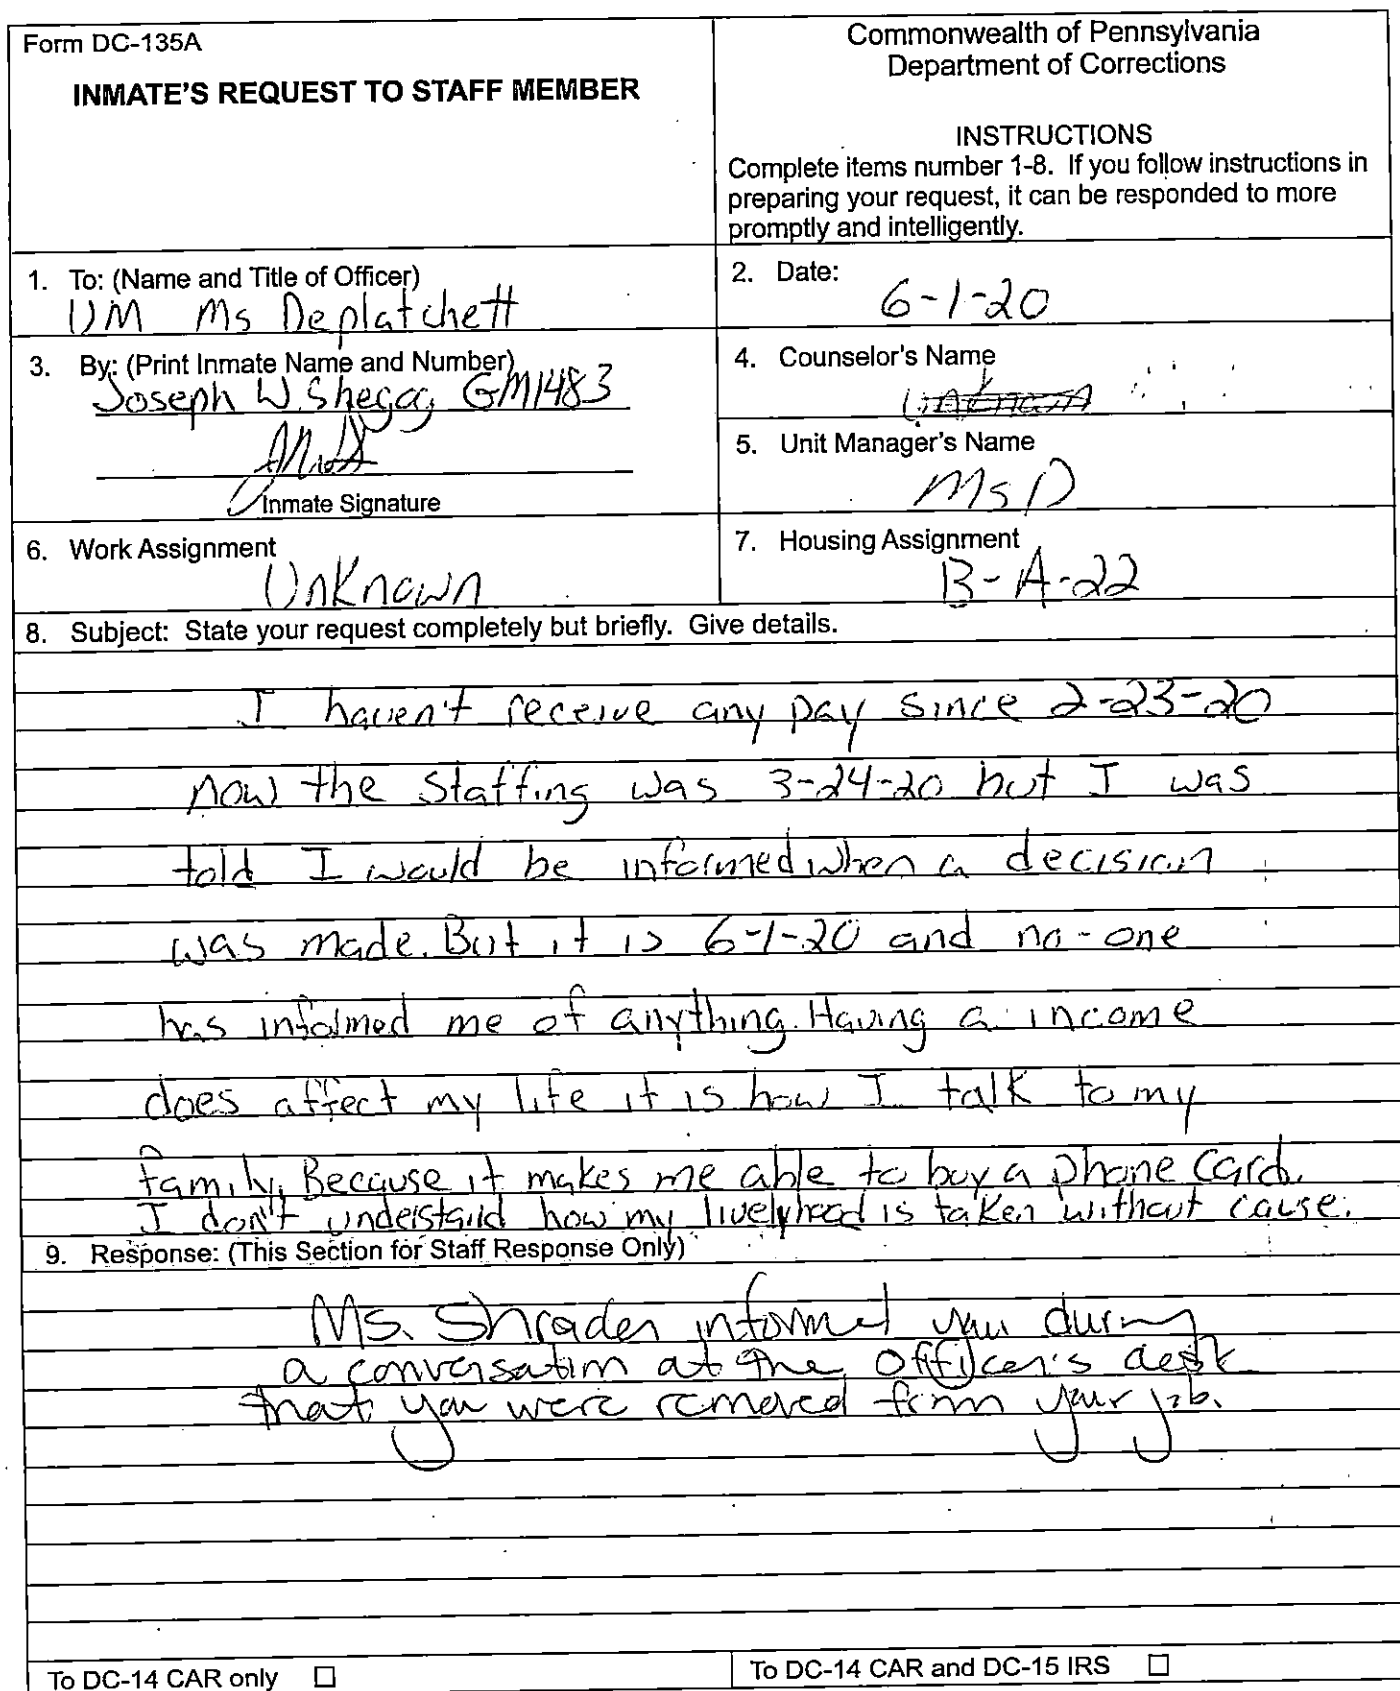 Form DC-135A
INMATE'S REQUEST TO STAFF MEMBER
Commonwealth of Pennsylvania
Department of Corrections
INSTRUCTIONS
Complete items number 1-8. If you follow instructions in
preparing your request, it can be responded to more
promptly and intelligently.
1. To: (Name and Title of Officer)
UM Ms Deplatchett
2. Date:
6-1-20
3. By: (Print Inmate Name and Number)
Joseph W. Shegog GM1483
Inmate Signature
4. Counselor's Name
Unknown
5. Unit Manager's Name
Ms D
6. Work Assignment
UnKnown
7. Housing Assignment
B-A-22
8. Subject: State your request completely but briefly. Give details.
I haven't receive any pay since 2-23-20
now the Staffing was 3-24-20 but I was
told I would be informed when a decision
was made. But it is 6-1-20 and no-one
has informed me of anything. Having a income
does affect my life it is how I talk to my
family. Because it makes me able to buy a phone card.
I don't understand how my livelyhood is taken without cause.
9. Response: (This Section for Staff Response Only)
Ms. Shrader informed you during
a conversation at the officer's desk
that you were removed from your job.
To DC-14 CAR only ☐
To DC-14 CAR and DC-15 IRS ☐